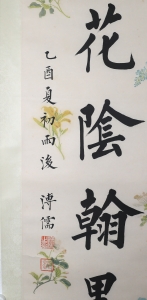 花陰翰墨
乙酉夏初雨後
溥儒